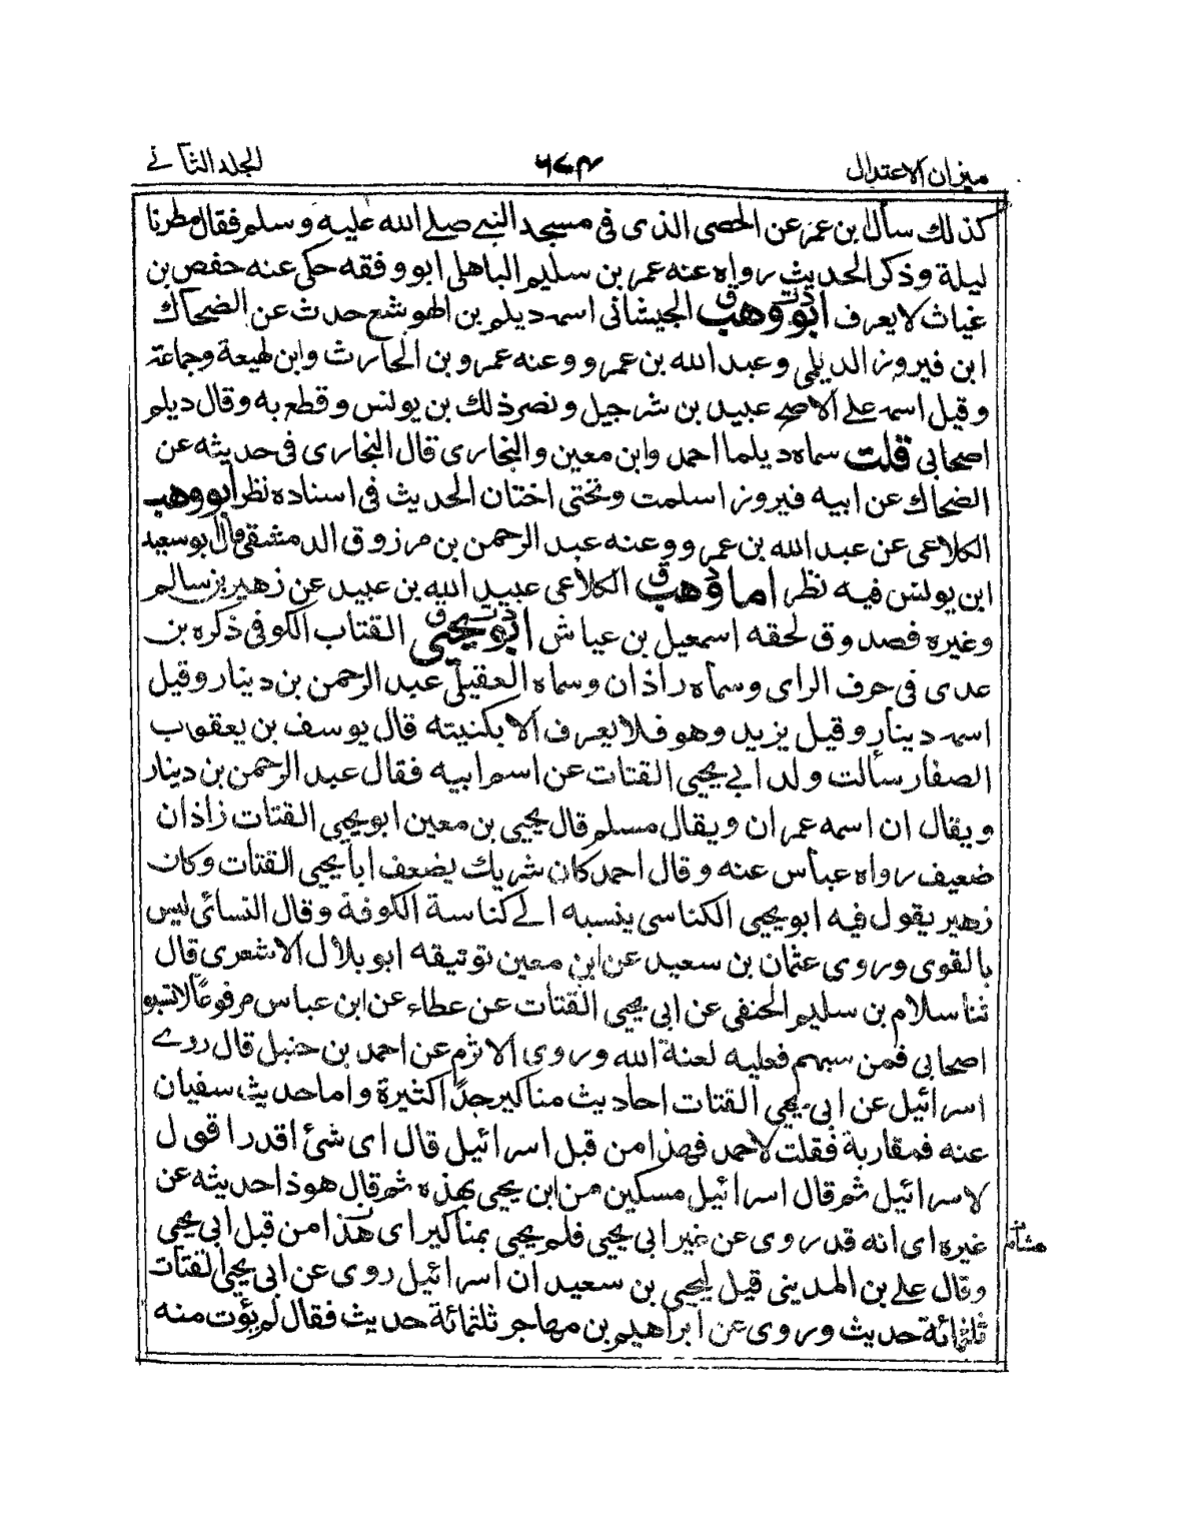 ميزان الاعتدال ٦٧٣ الجلد الثاني
كذلك سأل ابن عمر عن الحصى الذى فى مسجد النبي صلے الله عليه وسلم فقال مطرنا
ليلة وذكر الحديث رواه عنه عمر بن سليم الباهلى ابو وفقه حكى عنه حفص بن
غياث لا يعرف ابو وهب الجيشانى اسمه ديلم بن الهوشع حدث عن الضحاك
ابن فيروز الديلى وعبد الله بن عمرو وعنه عمرو بن الحارث وابن لهيعة وجماعة
وقيل اسمه على الاصح عبيد بن شرحبيل ونصر ذلك بن يونس وقطع به وقال ديلم
اصحابى قلت سماه ديلما احمد وابن معين والبخارى قال البخارى فى حديثه عن
الضحاك عن ابيه فيروز اسلمت وتحتى اختان الحديث فى اسناده نظر ابو وهب
الكلاعى عن عبد الله بن عمرو وعنه عبد الرحمن بن مرزوق الدمشقى قال ابو سعيد
ابن يونس فيه نظر اما وهب الكلاعى عبيد الله بن عبيد عن زهير بن سالم
وغيره فصدوق لحقه اسمعيل بن عياش ابو يحيى القتاب الكوفى ذكره بن
عدى فى حرف الراى وسماه راذان وسماه العقيلى عبد الرحمن بن دينار وقيل
اسمه دينار وقيل يزيد وهو فلا يعرف الا بكنيته قال يوسف بن يعقوب
الصفار سألت ولد ابي يحيى القتات عن اسم ابيه فقال عبد الرحمن بن دينار
ويقال ان اسمه عمران ويقال مسلم قال يحيى بن معين ابو يحيى القتات زاذان
ضعيف رواه عباس عنه وقال احمد كان شريك يضعف ابا يحيى القتات وكان
زهير يقول فيه ابو يحيى الكناسى ينسبه الے كناسة الكوفة وقال النسائى ليس
بالقوى وروى عثمان بن سعيد عن ابن معين توثيقه ابو بلال الاشعرى قال
ثنا سلام بن سليم الحنفى عن ابى يحيى القتات عن عطاء عن ابن عباس مرفوعا لا تسبو
اصحابى فمن سبهم فعليه لعنة الله وروى الاثرم عن احمد بن حنبل قال روے
اسرائيل عن ابى يحيى القتات احاديث مناكير جدا كثيرة واما حديث سفيان
عنه فمقاربة فقلت لاحمد فهذا من قبل اسرائيل قال اى شئ اقدر اقول
لاسرائيل ثم قال اسرائيل مسكين من ابن يحيى بهذه ثم قال هوذا حديثه عن
غيره اى انه قد روى عن غير ابى يحيى فلم يحيى بمناكير اى هذا من قبل ابى يحيى
وقال علے بن المدينى قيل ليحيى بن سعيد ان اسرائيل روى عن ابى يحيى القتات
ثلثمائة حديث وروى عن ابراهيم بن مهاجر ثلثمائة حديث فقال لم يؤت منه